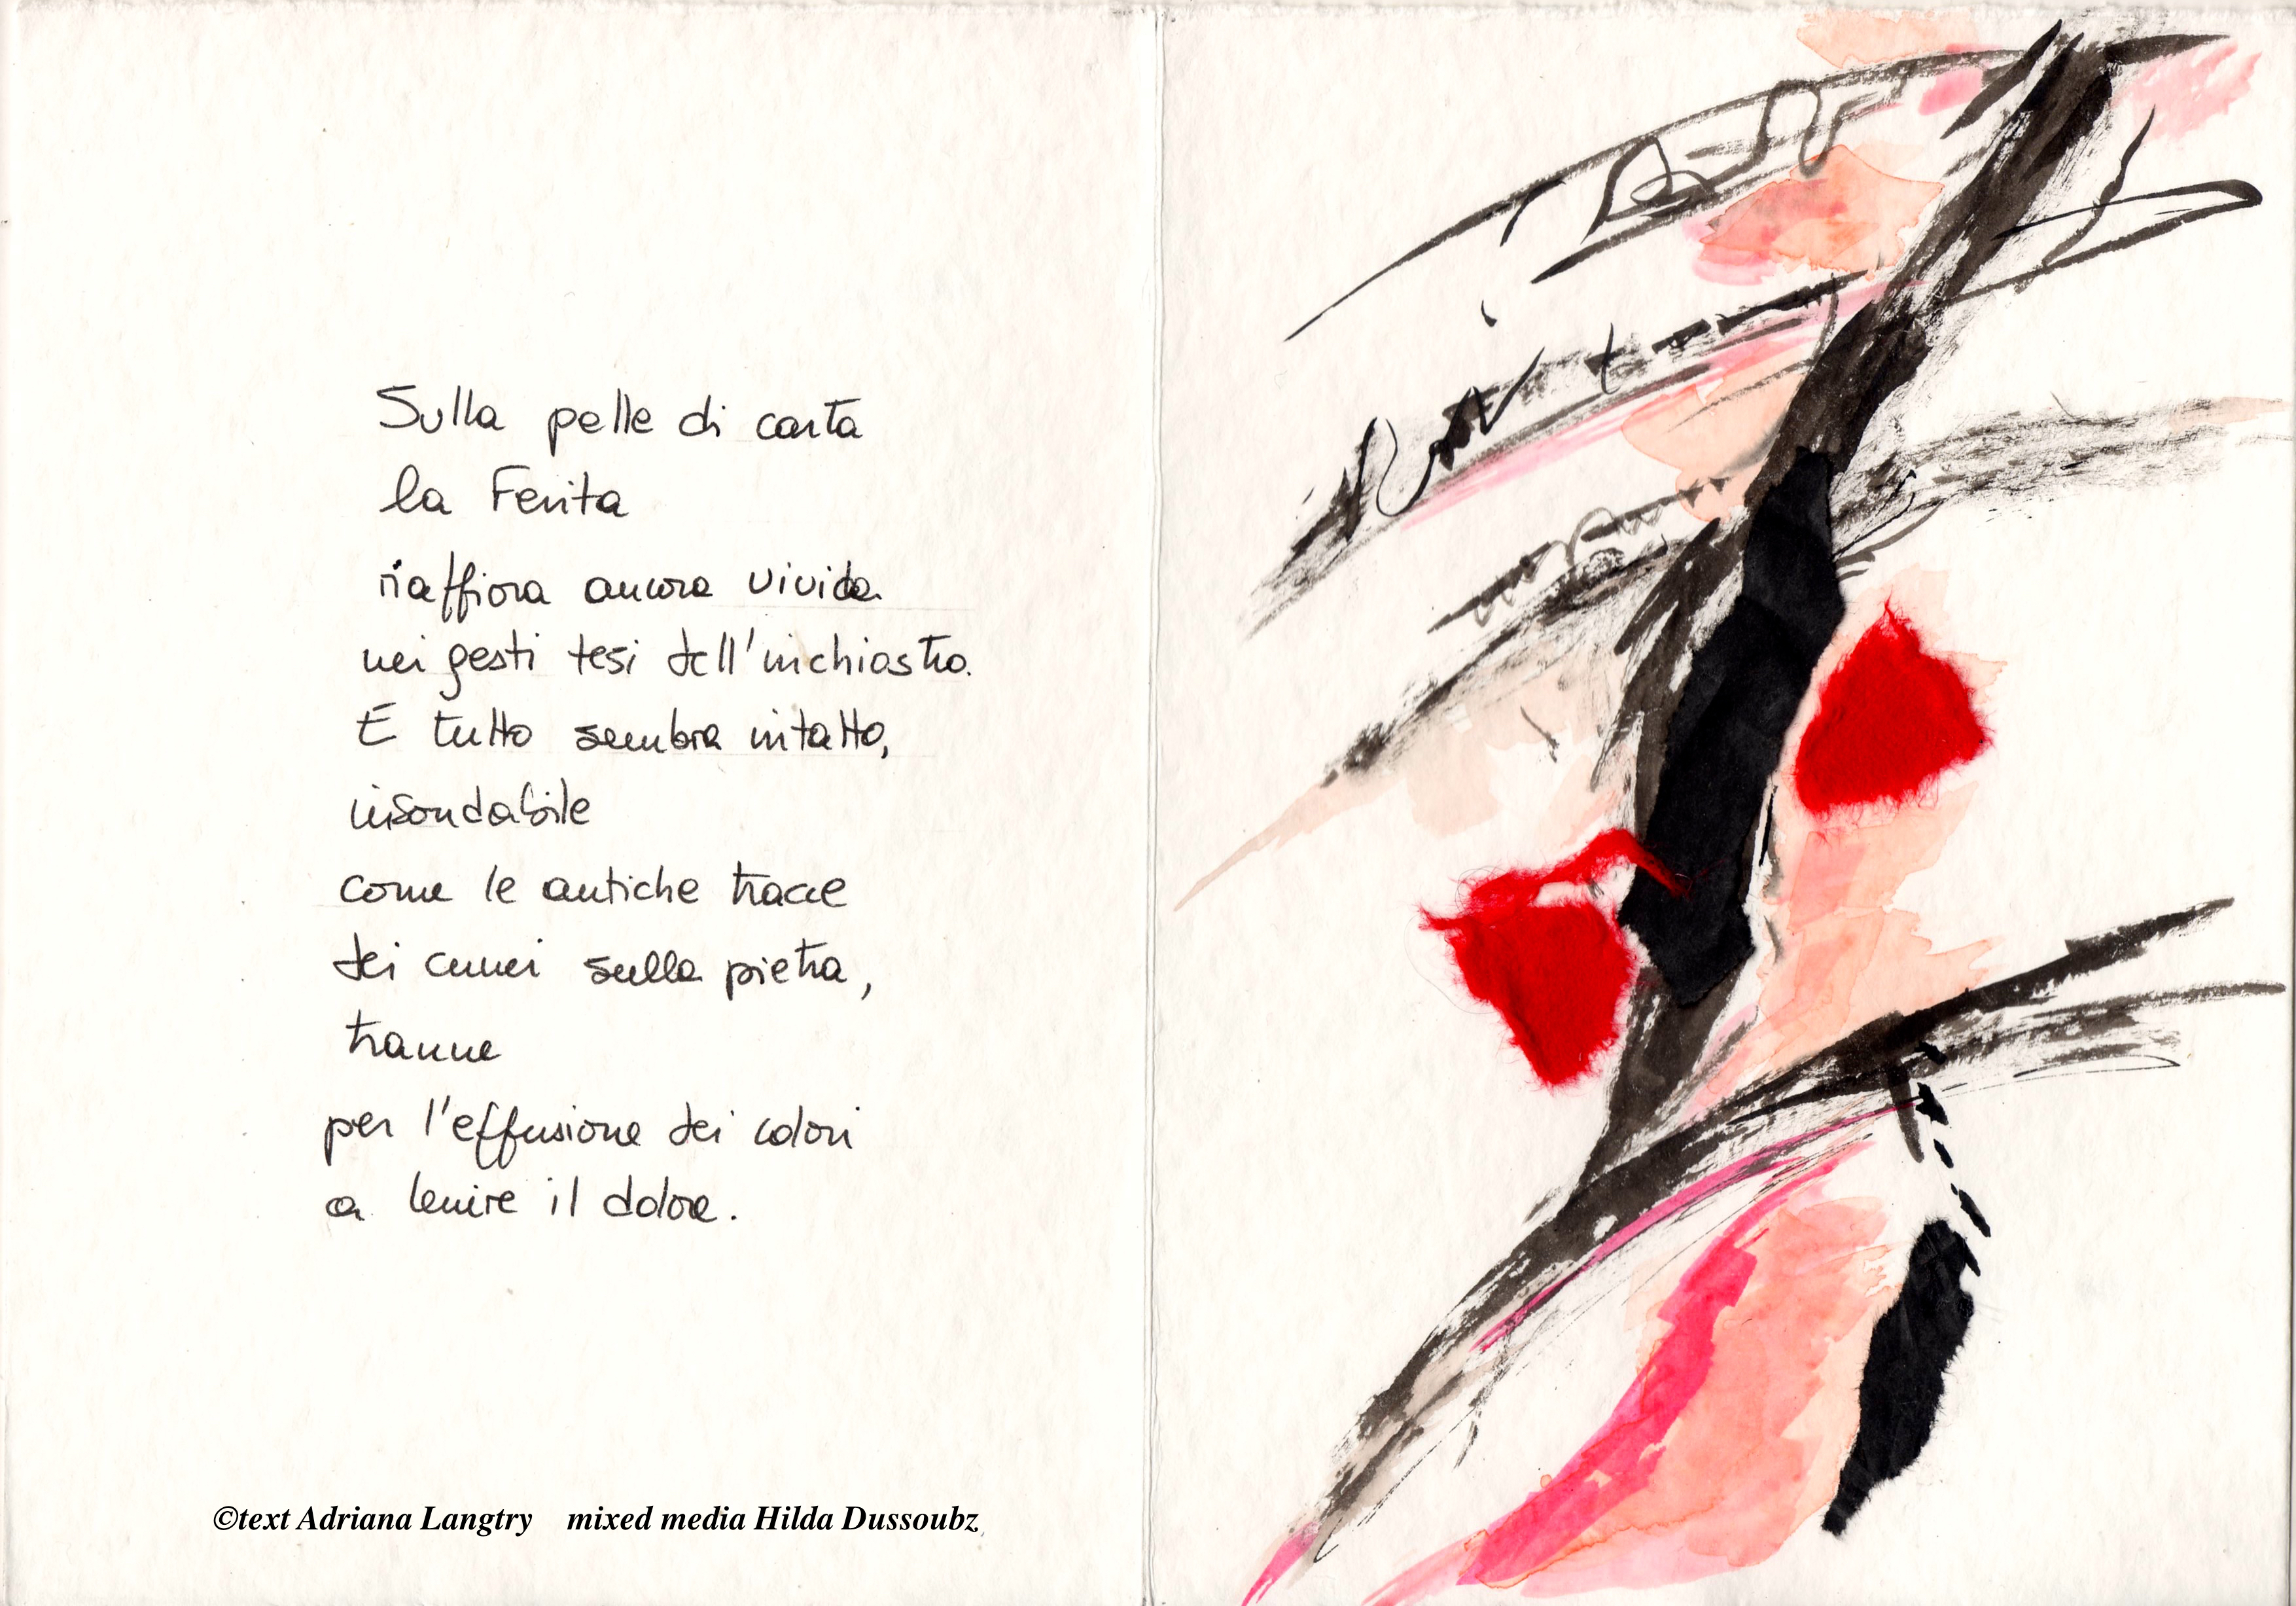 Sulla pelle di carta
la Ferita
riaffiora ancora vivida
nei gesti tesi dell'inchiostro.
E tutto sembra intatto,
insondabile
come le antiche tracce
dei cunei sulla pietra,
tranne
per l'effusione dei colori
a lenire il dolore.
©text Adriana Langtry mixed media Hilda Dussoubz